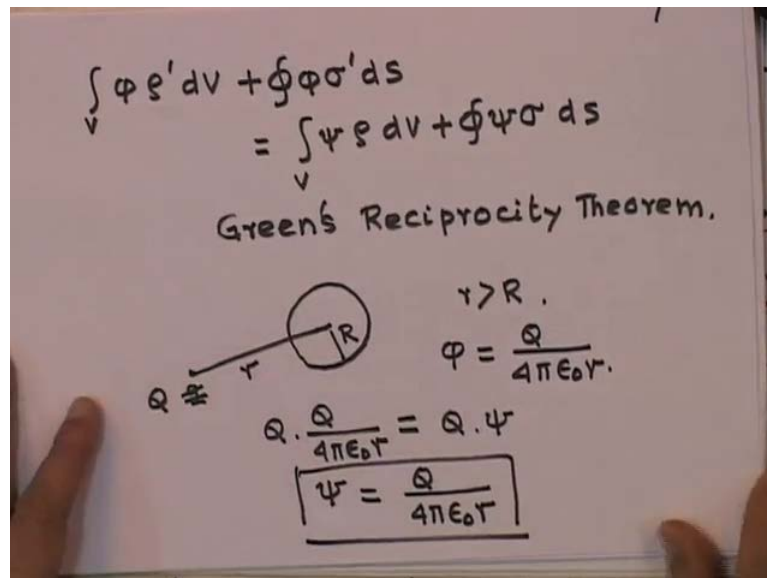 ∫_V φ ρ' dV + ∮ φ σ' dS
= ∫_V ψ ρ dV + ∮ ψ σ dS
Green's Reciprocity Theorem.
r > R .
R
φ = Q / 4πε₀r.
r
Q
Q . Q / 4πε₀r = Q . ψ
ψ = Q / 4πε₀r